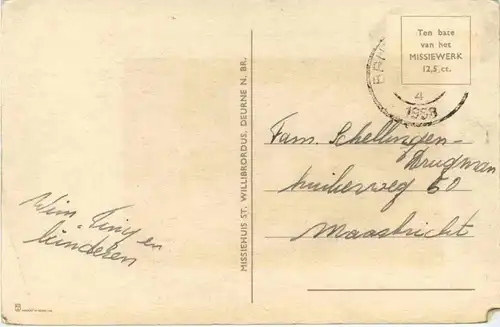 Wim - Tiny en
kinderen
MISSIEHUIS ST. WILLIBRORDUS, DEURNE N. BR.
Ten bate
van het
MISSIEWERK
12,5 ct.
4
1958
Fam. Schellingen-
Brugman
60
Maastricht